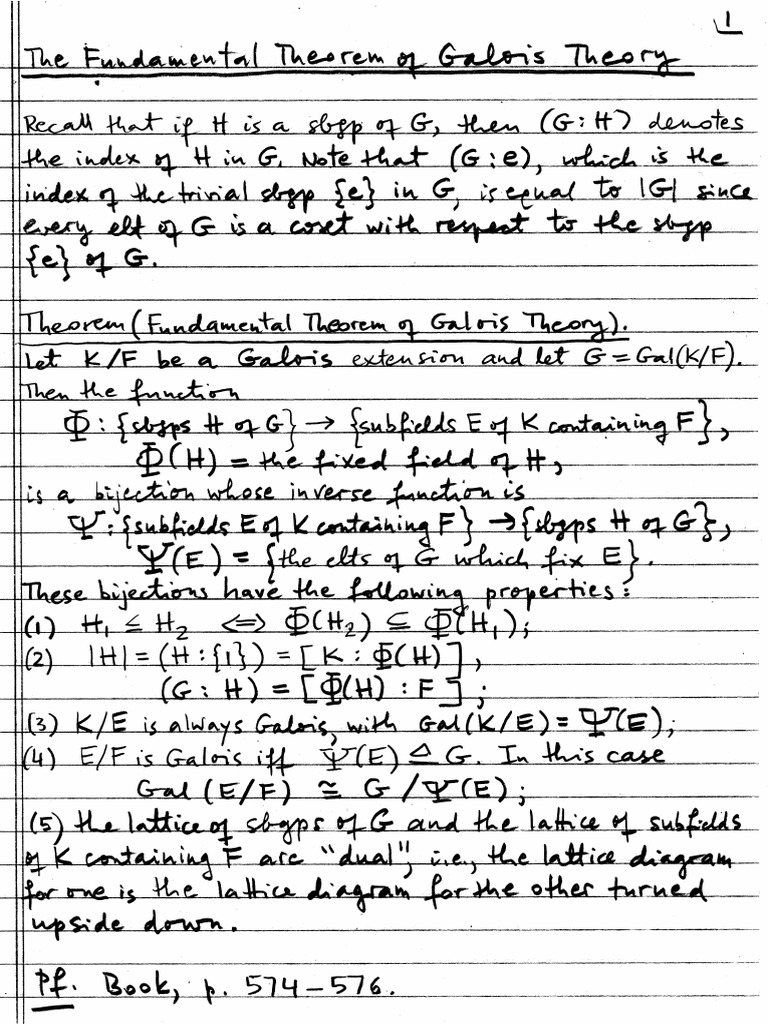 1
The Fundamental Theorem of Galois Theory
Recall that if H is a sbgp of G, then (G:H) denotes
the index of H in G. Note that (G:e), which is the
index of the trivial sbgp {e} in G, is equal to |G| since
every elt of G is a coset with respect to the sbgp
{e} of G.
Theorem (Fundamental Theorem of Galois Theory).
Let K/F be a Galois extension and let G = Gal(K/F).
Then the function
Φ: {sbgps H of G} → {subfields E of K containing F},
Φ(H) = the fixed field of H,
is a bijection whose inverse function is
Ψ: {subfields E of K containing F} → {sbgps H of G},
Ψ(E) = {the elts of G which fix E}.
These bijections have the following properties:
(1) H₁ ≤ H₂ ⇔ Φ(H₂) ⊆ Φ(H₁);
(2) |H| = (H:{1}) = [K : Φ(H)],
(G : H) = [Φ(H) : F];
(3) K/E is always Galois, with Gal(K/E) = Ψ(E);
(4) E/F is Galois iff Ψ(E) ⊴ G. In this case
Gal (E/F) ≅ G/Ψ(E);
(5) the lattice of sbgps of G and the lattice of subfields
of K containing F are "dual", i.e., the lattice diagram
for one is the lattice diagram for the other turned
upside down.
Pf. Book, p. 574–576.